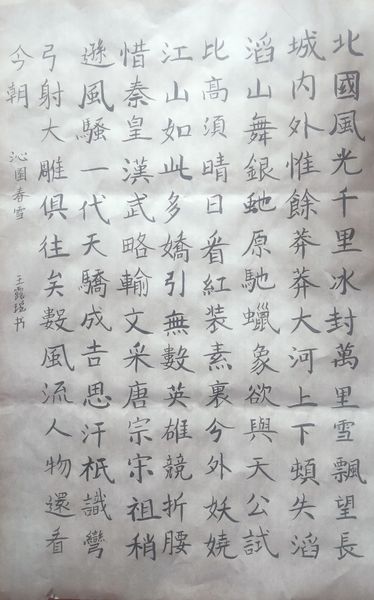 北國風光千里冰封萬里雪飄望長
城内外惟餘莽莽大河上下頓失滔
滔山舞銀虵原馳蠟象欲與天公試
比高須晴日看紅装素裹兮外妖嬈
江山如此多嬌引無數英雄競折腰
惜秦皇漢武略輸文采唐宗宋祖稍
遜風騷一代天驕成吉思汗衹識彎
弓射大雕俱往矣數風流人物還看
今朝 沁園春雪 王露书